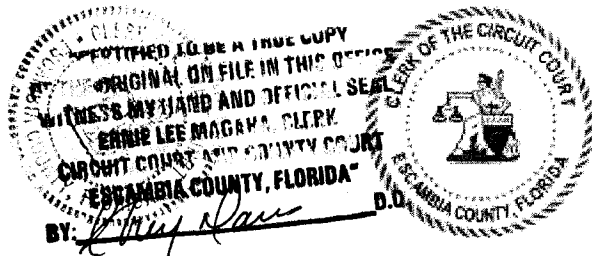 "CERTIFIED TO BE A TRUE COPY
ORIGINAL ON FILE IN THIS OFFICE
WITNESS MY HAND AND OFFICIAL SEAL
ERNIE LEE MAGAHA, CLERK
CIRCUIT COURT AND COUNTY COURT
ESCAMBIA COUNTY, FLORIDA"
BY: D.C.
CLERK OF THE CIRCUIT COURT
ESCAMBIA COUNTY, FLORIDA